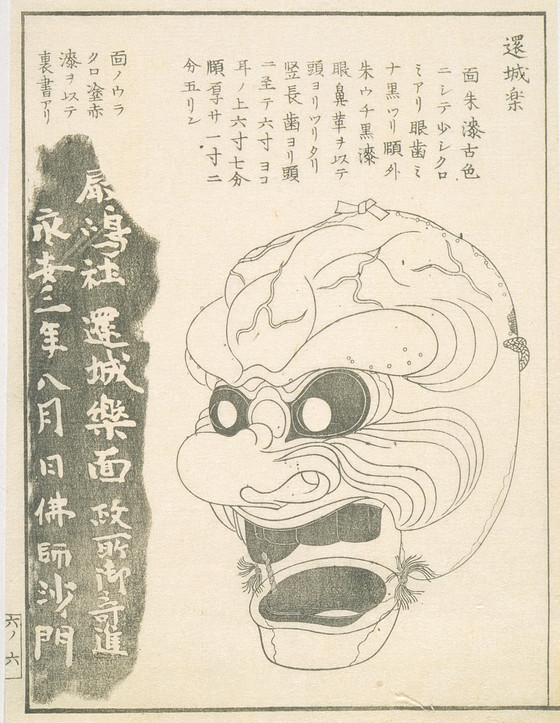 還城楽
面朱漆古色
ニシテ少シクロ
ミアリ眼歯ミ
ナ黒ツリ顋外
朱ウチ黒漆
眼鼻革ヲ以テ
頭ヨリツリタリ
竪長歯ヨリ頭
ニ至テ六寸ヨコ
耳ノ上六寸七分
顋厚サ一寸二
分五リン
面ノウラ
クロ塗赤
漆ヲ以テ
裏書アリ
嶋社 還城樂面 政所御寄進
永三年八月日佛師沙門
六ノ六